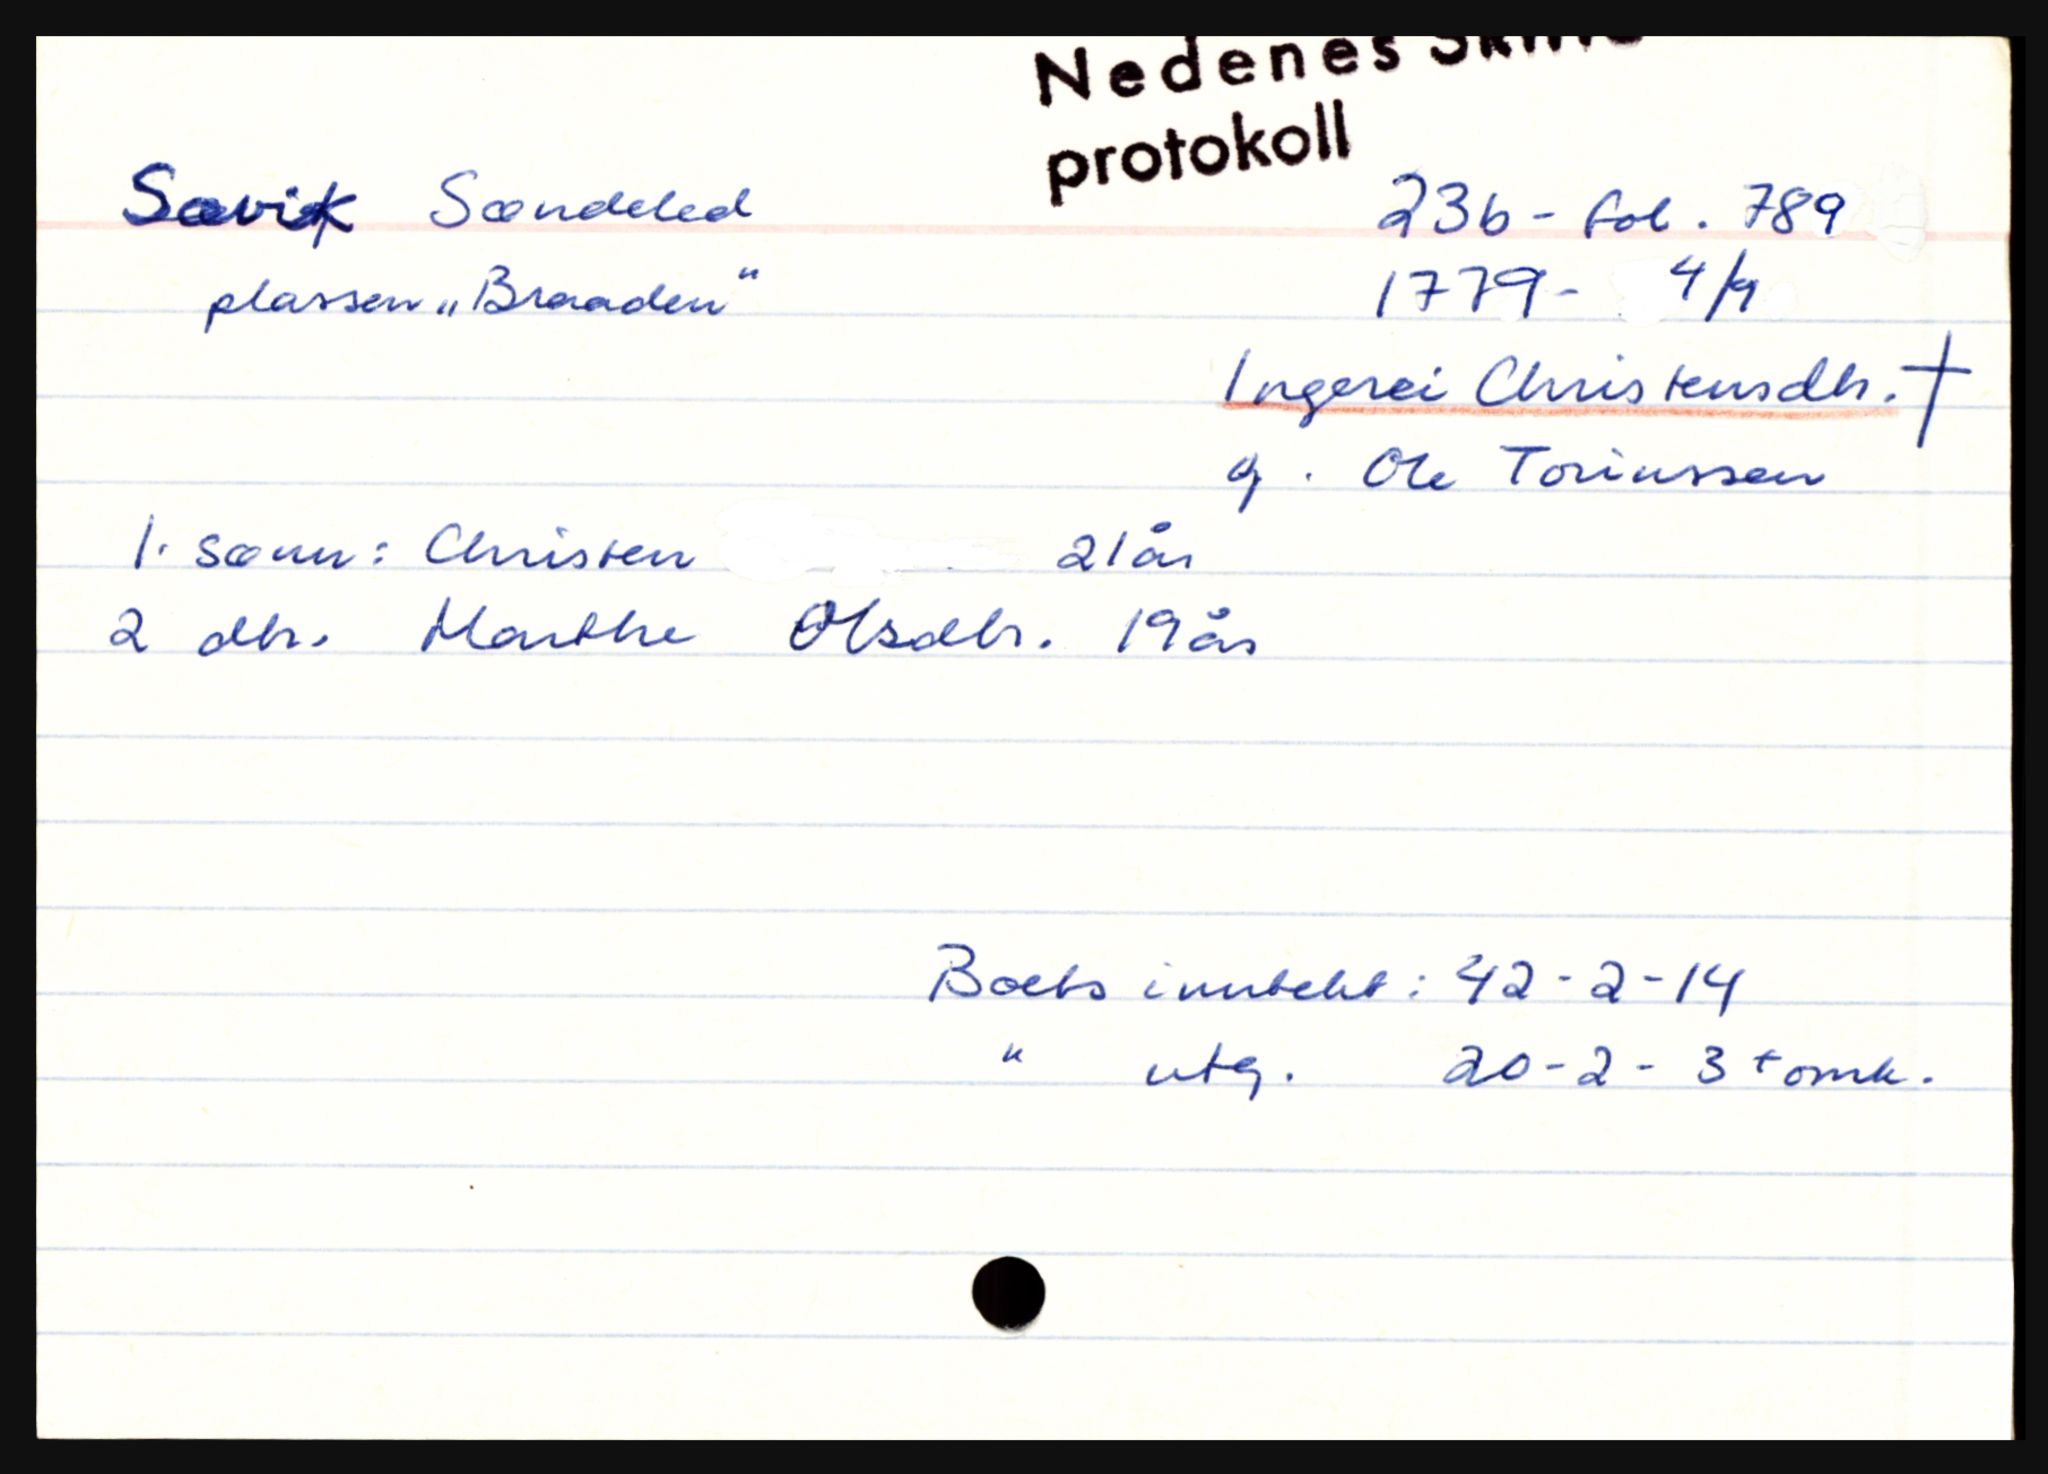 Nedenes Skifte
protokoll
Sævik Søndeled 23b - fol. 789
plassen „Braaden" 1779 - 4/9
Ingerei Christensdtr. †
g. Ole Toriussen
1. sønn: Christen 21 år
2 dtr. Marthe Olsdtr. 19 år
Boets inntekt: 42-2-14
" utg. 20-2-3 + omk.